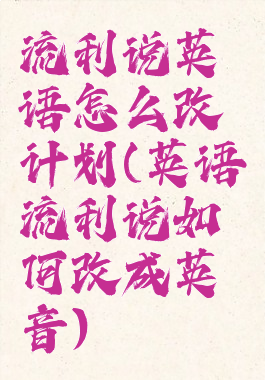 流利说英
语怎么改
计划(英语
流利说如
何改成英
音)